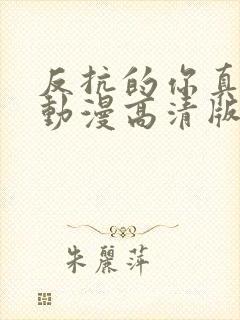 反抗的你真
動漫高清版
朱麗萍